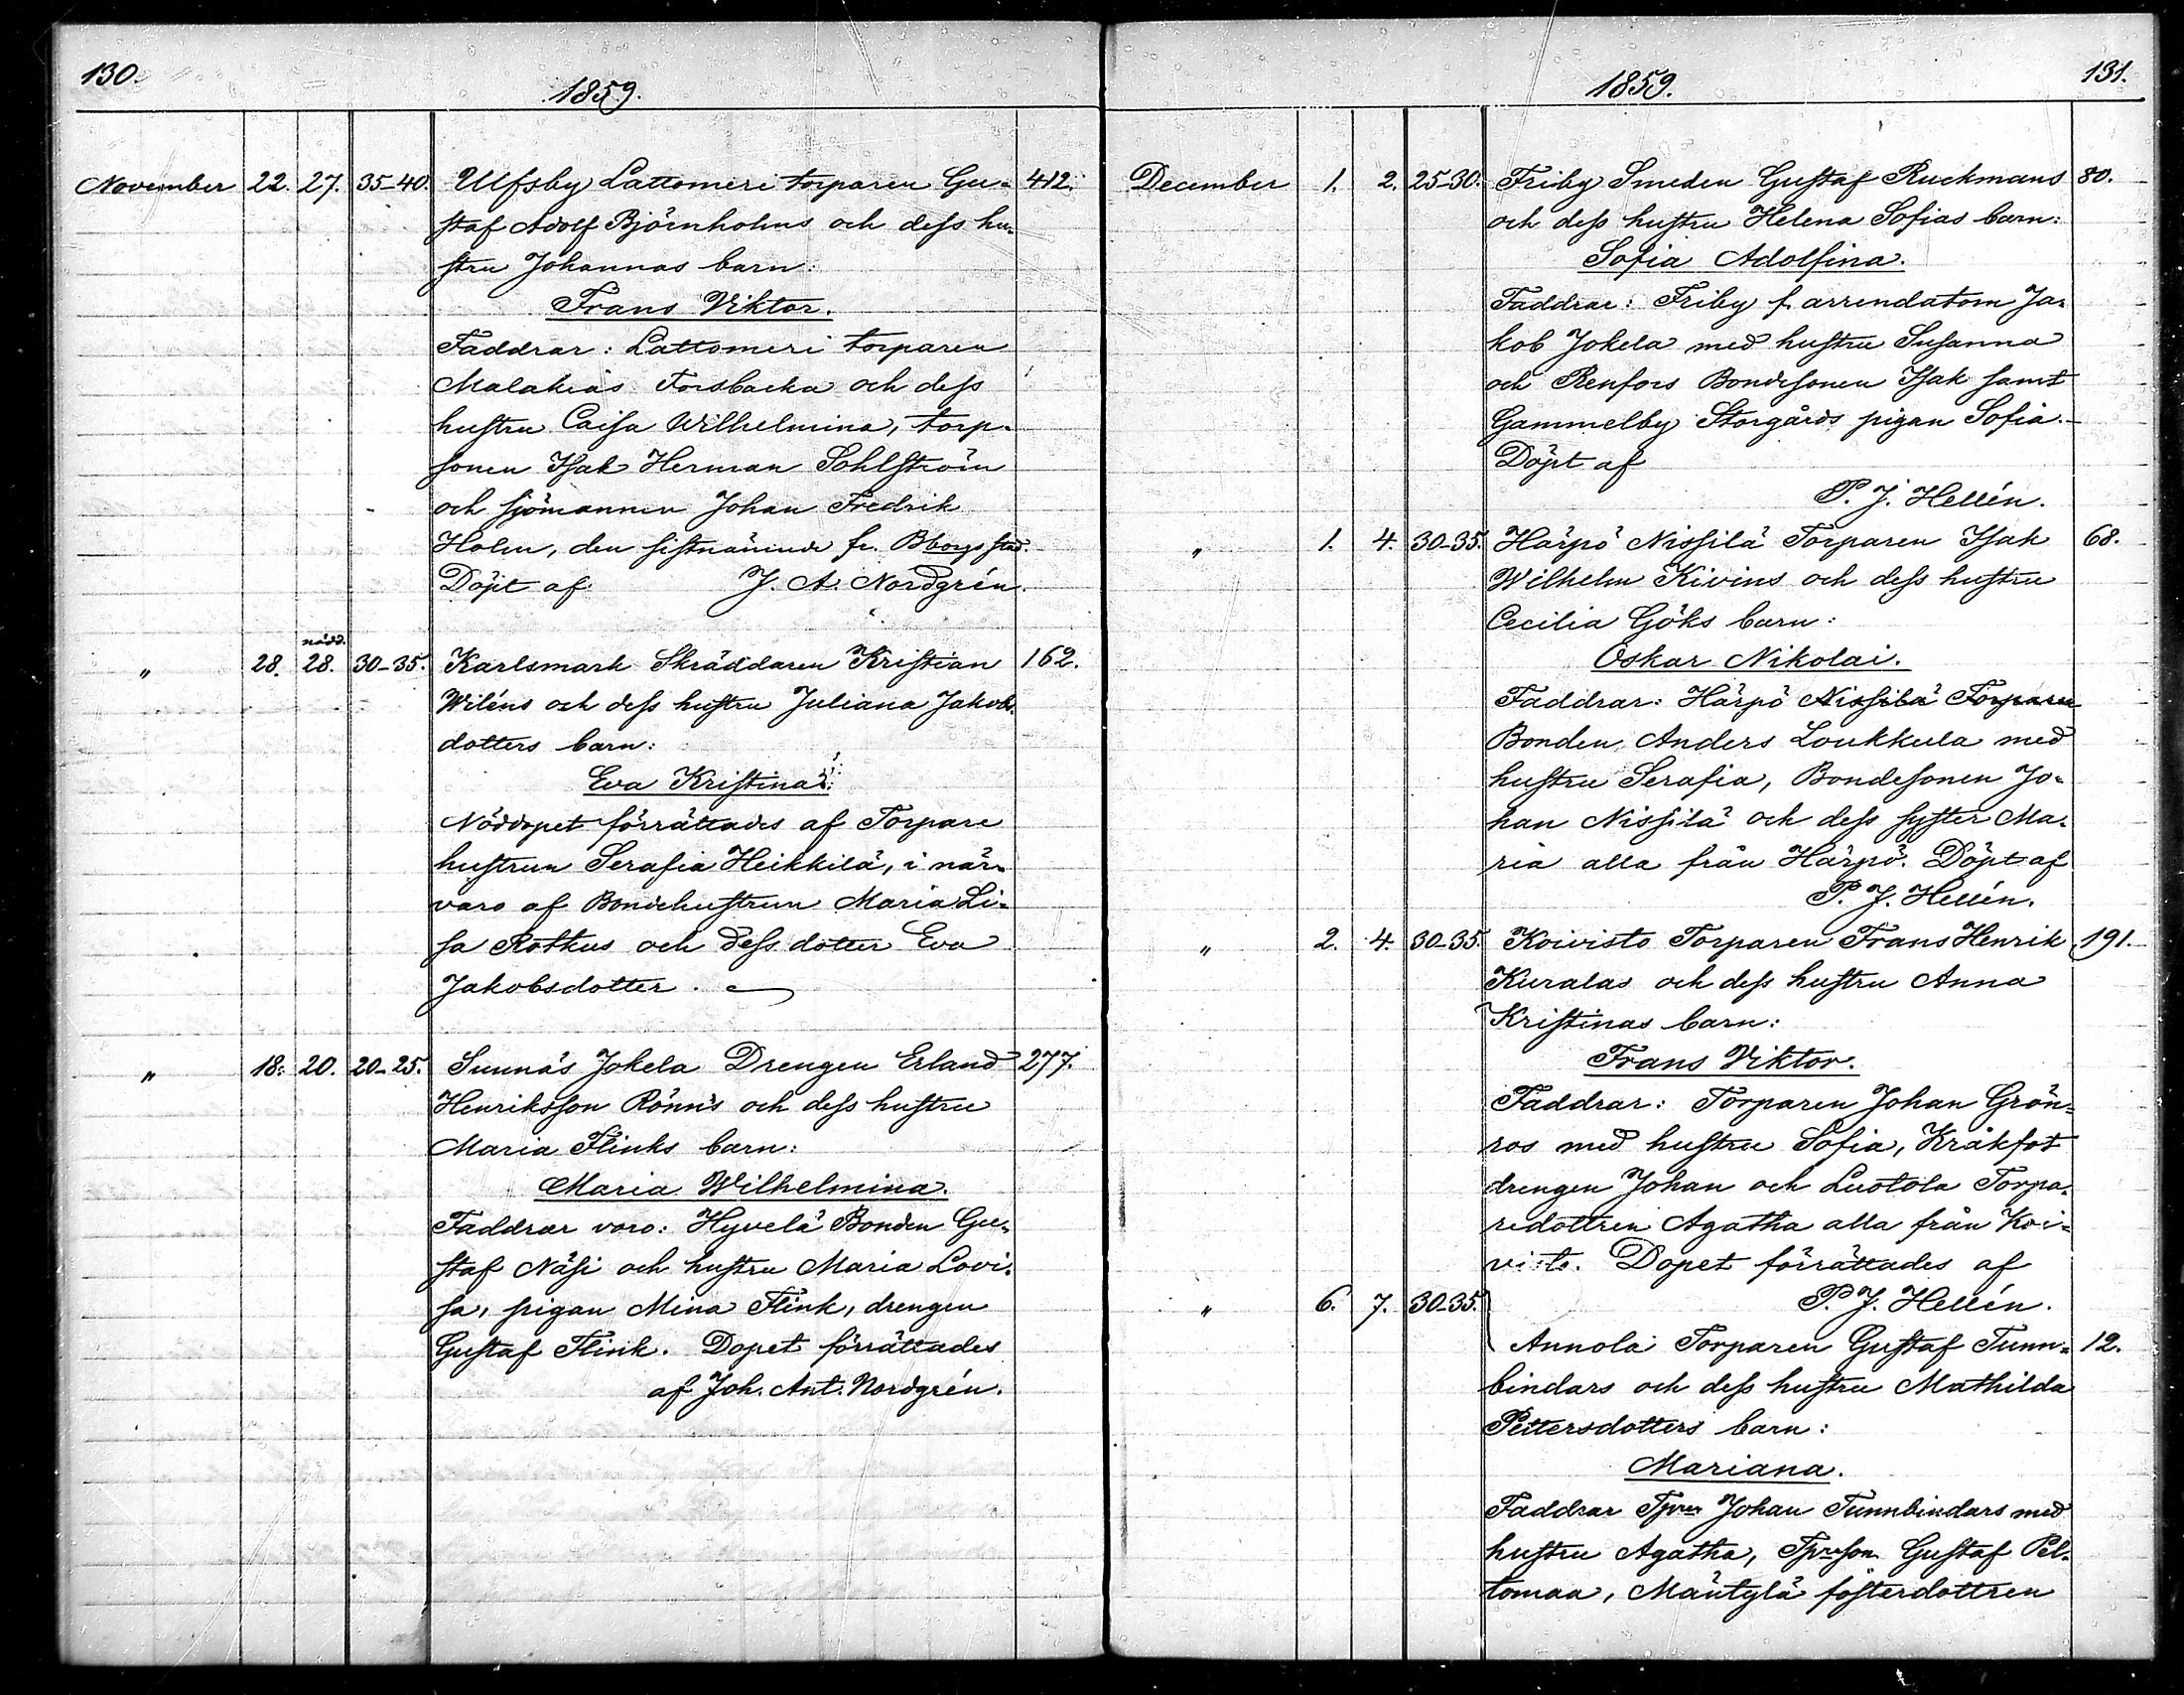 130.
1859.
November 22. 27. 35-40. Ulfsby Lattomeri torparen Gu- 412.
staf Adolf Björnholms och dess hu-
stru Johannas barn:
Frans Viktor.
Faddrar: Lattomeri torparen
Malakias Forsbacka och dess
hustru Caisa Wilhelmina, torp-
sonen Isak Herman Sohlström
och sjömannen Johan Fredrik
Holm, den sistnämnde fr. Bborgs stad.
Döpt af J. A. Nordgrén.
nödd.
" 28. 28. 30-35. Karlsmark Skräddaren Kristian 162.
Wiléns och dess hustru Juliana Jakobs-
dotters barn:
Eva Kristina.
Nöddopet förrättades af Torpare
hustrun Serafia Heikkilä, i när-
varo af Bondehustrun Maria Li-
sa Rotkus och dess dotter Eva
Jakobsdotter.
" 18. 20. 20-25. Sunnäs Jokela Drengen Erland 277.
Henriksson Rönn's och dess hustru
Maria Flinks barn:
Maria Wilhelmina.
Faddrar voro: Hyvelä Bonden Gu-
staf Näsi och hustru Maria Lovi-
sa, pigan Mina Flink, drengen
Gustaf Flink. Dopet förrättades
af Joh. Ant. Nordgrén.
1859.
131.
December 1. 2. 25-30. Friby Smeden Gustaf Ruckmans 80.
och dess hustru Helena Sofias barn:
Sofia Adolfina.
Faddrar: Friby f. arrendatorn Ja-
kob Jokela med hustru Susanna
och Renfors Bondesonen Isak samt
Gammelby Storgårds pigan Sofia.
Döpt af
P. J. Hellén.
" 1. 4. 30-35. Härpö Nissilä Torparen Isak 68.
Wilhelm Kivins och dess hustru
Cecilia Göks barn:
Oskar Nikolai.
Faddrar: Härpö Nissilä Torparen
Bonden Anders Loukkula med
hustru Serafia, Bondesonen Jo-
han Nissilä och dess syster Ma-
ria alla från Härpö. Döpt af
P. J. Hellén.
" 2. 4. 30-35. Koivisto Torparen Frans Henrik 191.
Kuralas och dess hustru Anna
Kristinas barn:
Frans Viktor.
Faddrar: Torparen Johan Grön-
ros med hustru Sofia, Kråkfot
drengen Johan och Luotola Torpa-
redottren Agatha alla från Koi-
visto. Dopet förrättades af
" 6. 7. 30-35. P. J. Hellén.
Annola Torparen Gustaf Tunn- 12.
bindars och dess hustru Mathilda
Pettersdotters barn:
Mariana.
Faddrar Tpren Johan Tunnbindars med
hustru Agatha, Tprson Gustaf Pel-
tomaa, Mäntylä fosterdottren